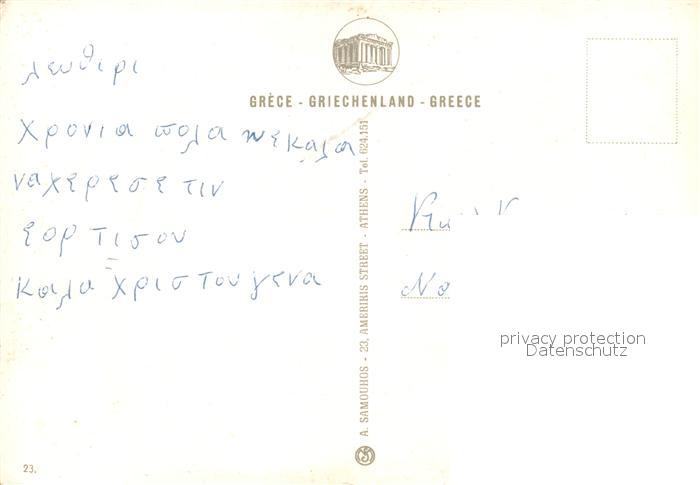 λευθερι
GRÈCE - GRIECHENLAND - GREECE
χρονια πολα με καλα
να χερεσε τιν
εορ τι σου
καλα χριστουγενα
A. SAMOUHOS - 23, AMERIKIS STREET - ATHENS - Tel. 624.151
privacy protection
Datenschutz
23.